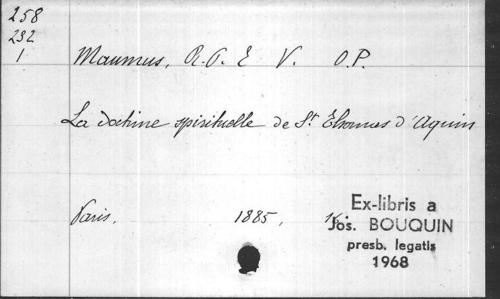 258
232
1
Maumus, R.P. E V. O.P.
La doctrine spirituelle de St Thomas d'Aquin
Paris. 1885,
Ex-libris a
Jos. BOUQUIN
presb. legatis
1968